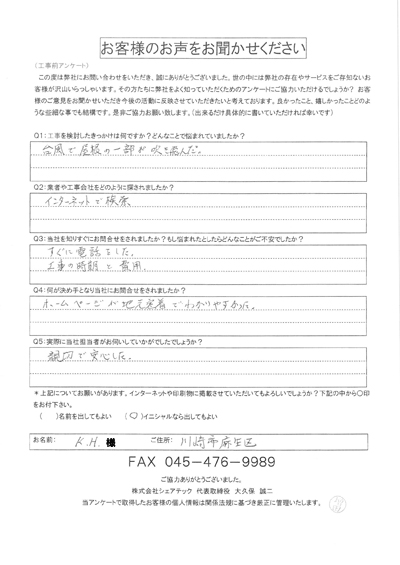 お客様のお声をお聞かせください
（工事前アンケート）
この度は弊社にお問い合わせをいただき、誠にありがとうございました。世の中には弊社の存在やサービスをご存知ないお
客様が沢山いらっしゃいます。その方たちに弊社をよく知っていただくためのアンケートにご協力いただけるでしょうか？ お客
様のご意見をお聞かせいただき今後の活動に反映させていただきたいと考えております。良かったこと、嬉しかったことどのよ
うな些細な事でも結構です。是非ご協力お願い致します。(出来るだけ具体的に書いていただければ幸いです)
Q1:工事を検討したきっかけは何ですか？どんなことで悩まれていましたか？
台風で屋根の一部が吹き飛んだ。
Q2:業者や工事会社をどのように探されましたか？
インターネットで検索
Q3:当社を知りすぐにお問合せをされましたか？もし悩まれたとしたらどんなことがご不安でしたか？
すぐに電話をした。
工事の時期と費用.
Q4:何が決め手となり当社にお問合せをされましたか？
ホームページが地元密着でわかりやすかった.
Q5:実際に当社担当者がお伺いしていかがでしたでしょうか？
親切で安心した.
＊上記についてお願いがあります。インターネットや印刷物に掲載させていただいてもよろしいでしょうか？下記の中から〇印
をお付下さい。
( )名前を出してもよい (○)イニシャルなら出してもよい
お名前: K.H. 様 ご住所: 川崎市麻生区
FAX 045-476-9989
ご協力ありがとうございました。
株式会社シェアテック 代表取締役 大久保 誠二
当アンケートで取得したお客様の個人情報は関係法規に基づき厳正に管理いたします。